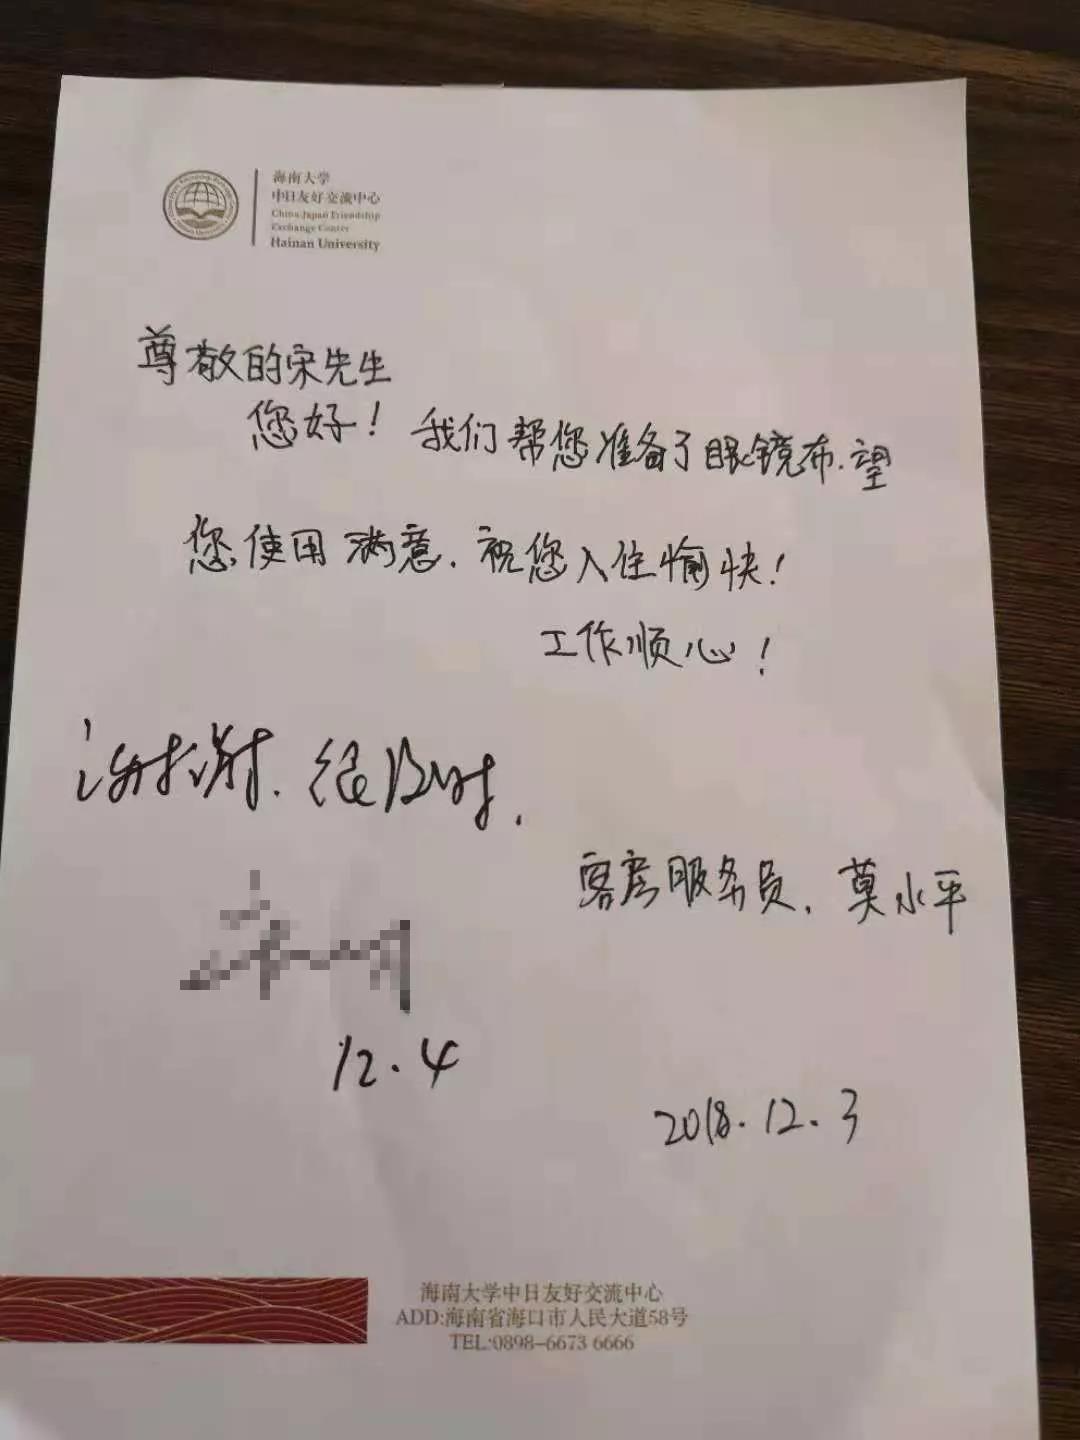 海南大学
中日友好交流中心
China-Japan Friendship
Exchange Center
Hainan University
尊敬的宋先生
您好！我们帮您准备了眼镜布.望
您使用满意.祝您入住愉快！
工作顺心！
谢谢.很及时.
客房服务员.莫水平
12.4
2018.12.3
海南大学中日友好交流中心
ADD:海南省海口市人民大道58号
TEL:0898-6673 6666